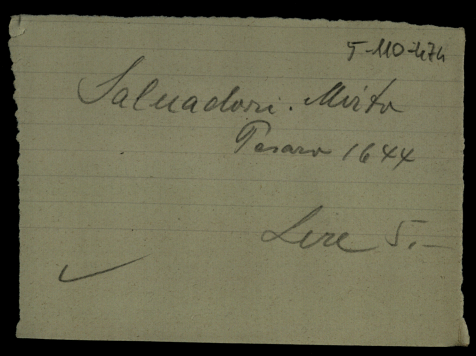 5-110-474
Salvadori. Mirto
Pesaro 1644
Lire 5.-